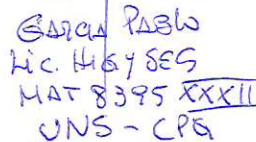 GARCIA PABLO
Lic. HIG Y SEG
MAT 8395 XXXII
UNS - CPQ